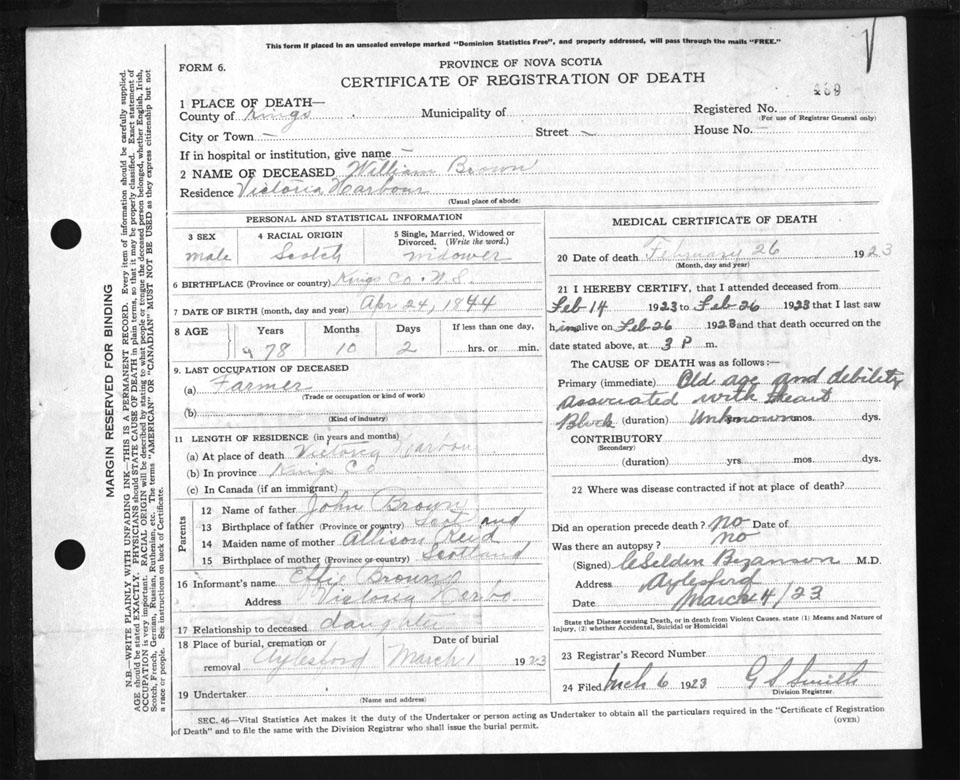 This form if placed in an unsealed envelope marked "Dominion Statistics Free", and properly addressed, will pass through the mails "FREE."
FORM 6.
PROVINCE OF NOVA SCOTIA
CERTIFICATE OF REGISTRATION OF DEATH
1 PLACE OF DEATH—
County of Kings Municipality of Registered No. 289
(For use of Registrar General only)
City or Town – Street – House No. –
If in hospital or institution, give name –
2 NAME OF DECEASED William Brown
Residence Victoria Harbour
(Usual place of abode)
PERSONAL AND STATISTICAL INFORMATION
3 SEX
male
4 RACIAL ORIGIN
Scotch
5 Single, Married, Widowed or Divorced. (Write the word.)
widower
6 BIRTHPLACE (Province or country) Kings Co. N.S.
7 DATE OF BIRTH (month, day and year) Apr 24, 1844
8 AGE Years Months Days If less than one day,
78 10 2 hrs. or min.
9. LAST OCCUPATION OF DECEASED
(a) Farmer
(Trade or occupation or kind of work)
(b)
(Kind of industry)
11 LENGTH OF RESIDENCE (in years and months)
(a) At place of death Victoria Harbou
(b) In province Kings Co
(c) In Canada (if an immigrant)
Parents
12 Name of father John Brown
13 Birthplace of father (Province or country) Scotland
14 Maiden name of mother Allison Reid
15 Birthplace of mother (Province or country) Scotland
16 Informant's name Effie Brown
Address Victoria Harbo
17 Relationship to deceased daughter
18 Place of burial, cremation or removal Aylesford
Date of burial
March 1 1923
19 Undertaker
(Name and address)
MEDICAL CERTIFICATE OF DEATH
20 Date of death February 26 1923
(Month, day and year)
21 I HEREBY CERTIFY, that I attended deceased from
Feb 14 1923 to Feb 26 1923 that I last saw
him alive on Feb 26 1923 and that death occurred on
date stated above, at 3 P m.
The CAUSE OF DEATH was as follows:—
Primary (immediate) Old age and debility
associated with Heart
Block (duration) Unknown mos. dys.
CONTRIBUTORY
(Secondary)
(duration) yrs. mos. dys.
22 Where was disease contracted if not at place of death?
Did an operation precede death? no Date of
Was there an autopsy? no
(Signed) C Selden Bezanson M.D.
Address Aylesford
Date March 4/23
State the Disease causing Death, or in death from Violent Causes, state (1) Means and Nature of
Injury, (2) whether Accidental, Suicidal or Homicidal
23 Registrar's Record Number
24 Filed Mch 6 1923 G S Smith
Division Registrar.
SEC. 46—Vital Statistics Act makes it the duty of the Undertaker or person acting as Undertaker to obtain all the particulars required in the "Certificate of Registration
of Death" and to file the same with the Division Registrar who shall issue the burial permit.
(OVER)
MARGIN RESERVED FOR BINDING
N.B.—WRITE PLAINLY WITH UNFADING INK—THIS IS A PERMANENT RECORD. Every item of information should be carefully supplied.
AGE should be stated EXACTLY. PHYSICIANS should STATE CAUSE OF DEATH in plain terms, so that it may be properly classified. Exact statement of
OCCUPATION is very important. RACIAL ORIGIN will be described by stating to what people or tongue the deceased person belonged, whether English, Irish,
Scotch, French, German, Russian, Ruthenian, etc. The terms "AMERICAN" or "CANADIAN" MUST NOT BE USED as they express citizenship but not
a race or people. See instructions on back of Certificate.